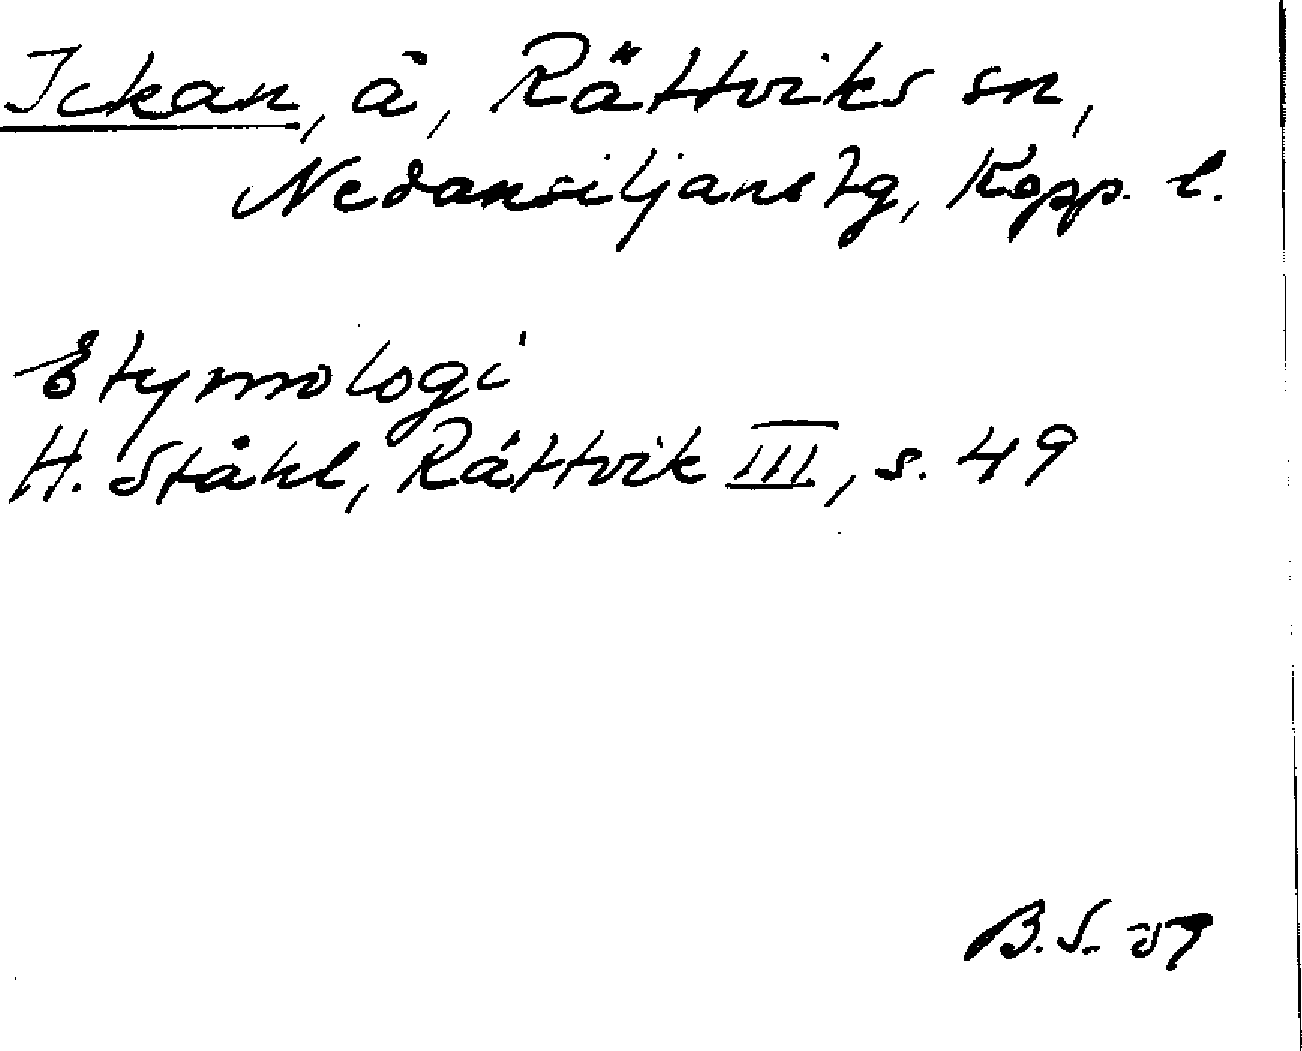 Ickan, å, Rättviks sn,
Nedansiljans tg, Kopp. l.
Etymologi
H. Ståhl, Rättvik III, s. 49
B.S.